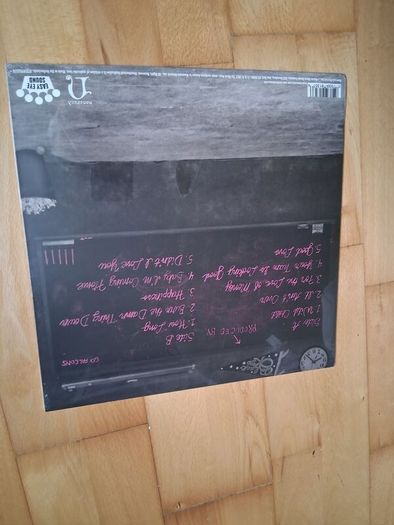 Side A
1. Wild Child
2. It Ain't Over
3. For the Love of Money
4. Your Team Is Looking Good
5. Good Love
PRODUCED BY
Side B
1. How Long
2. Burn the Damn Thing Down
3. Happiness
4. Baby I'm Coming Home
5. Didn't I Love You
nonesuch
EASY EYE
SOUND